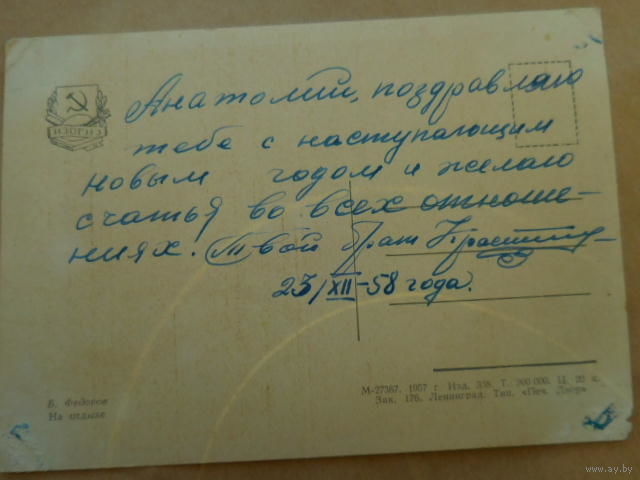 ИЗОГИЗ
Анатолий, поздравляю
тебе с наступающим
новым годом и желаю
счатья во всех отноше-
ниях! Твой брат
23/XII-58 года.
Б. Федоров
На отдыхе
М-27387. 1957 г Изд. 338. Т. 200 000. Ц. 20 к.
Зак. 176. Ленинград. Тип. «Печ. Двор»
www.ay.by